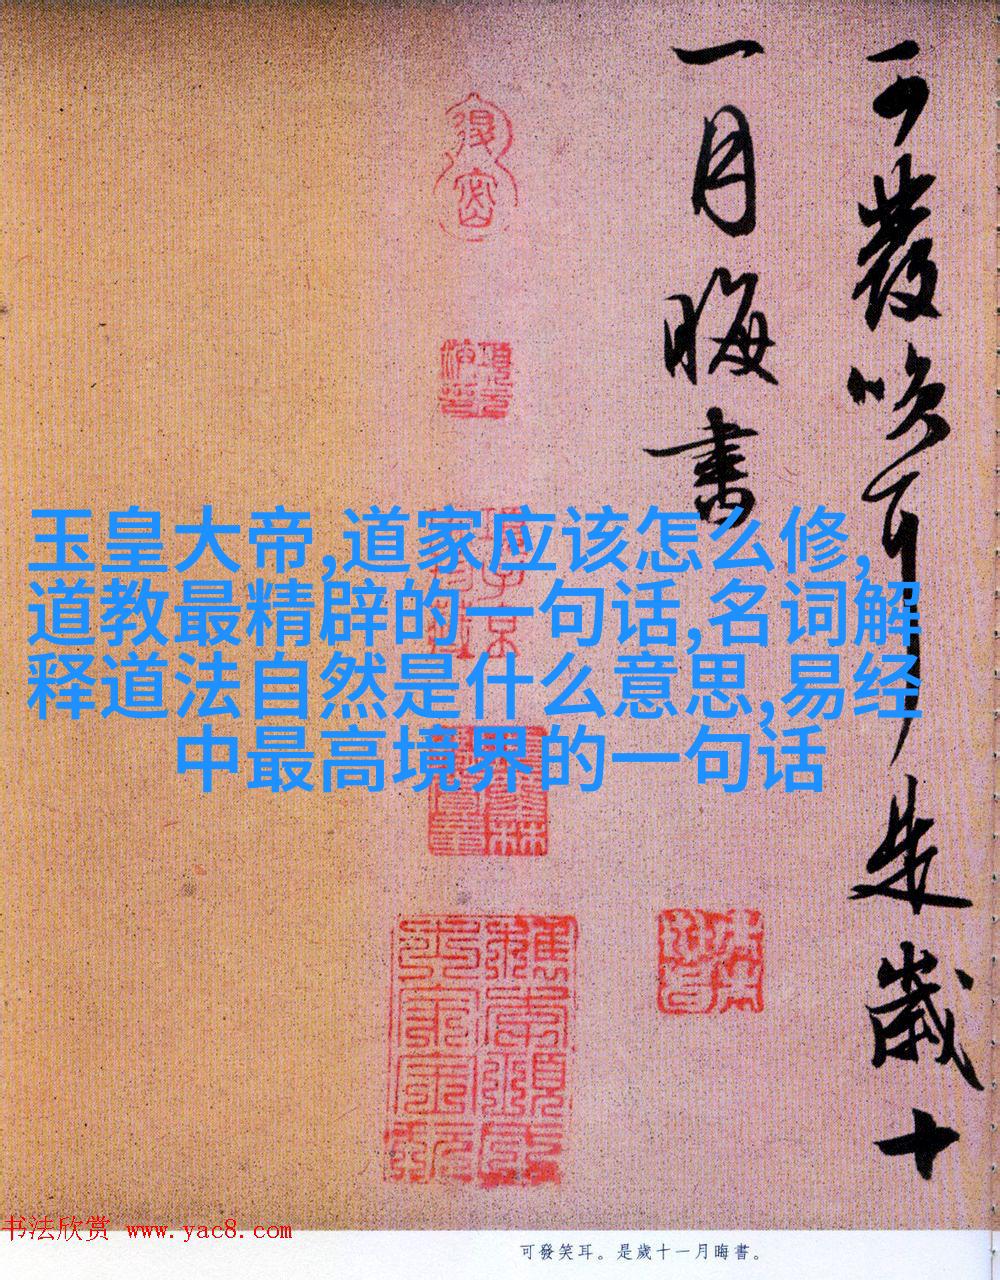 可發笑耳是歲十
一月晦書
玉皇大帝,道家应该怎么修,
道教最精辟的一句话,名词解
释道法自然是什么意思,易经
中最高境界的一句话
书法欣赏 www.yac8.com
可發笑耳。是歲十一月晦書。